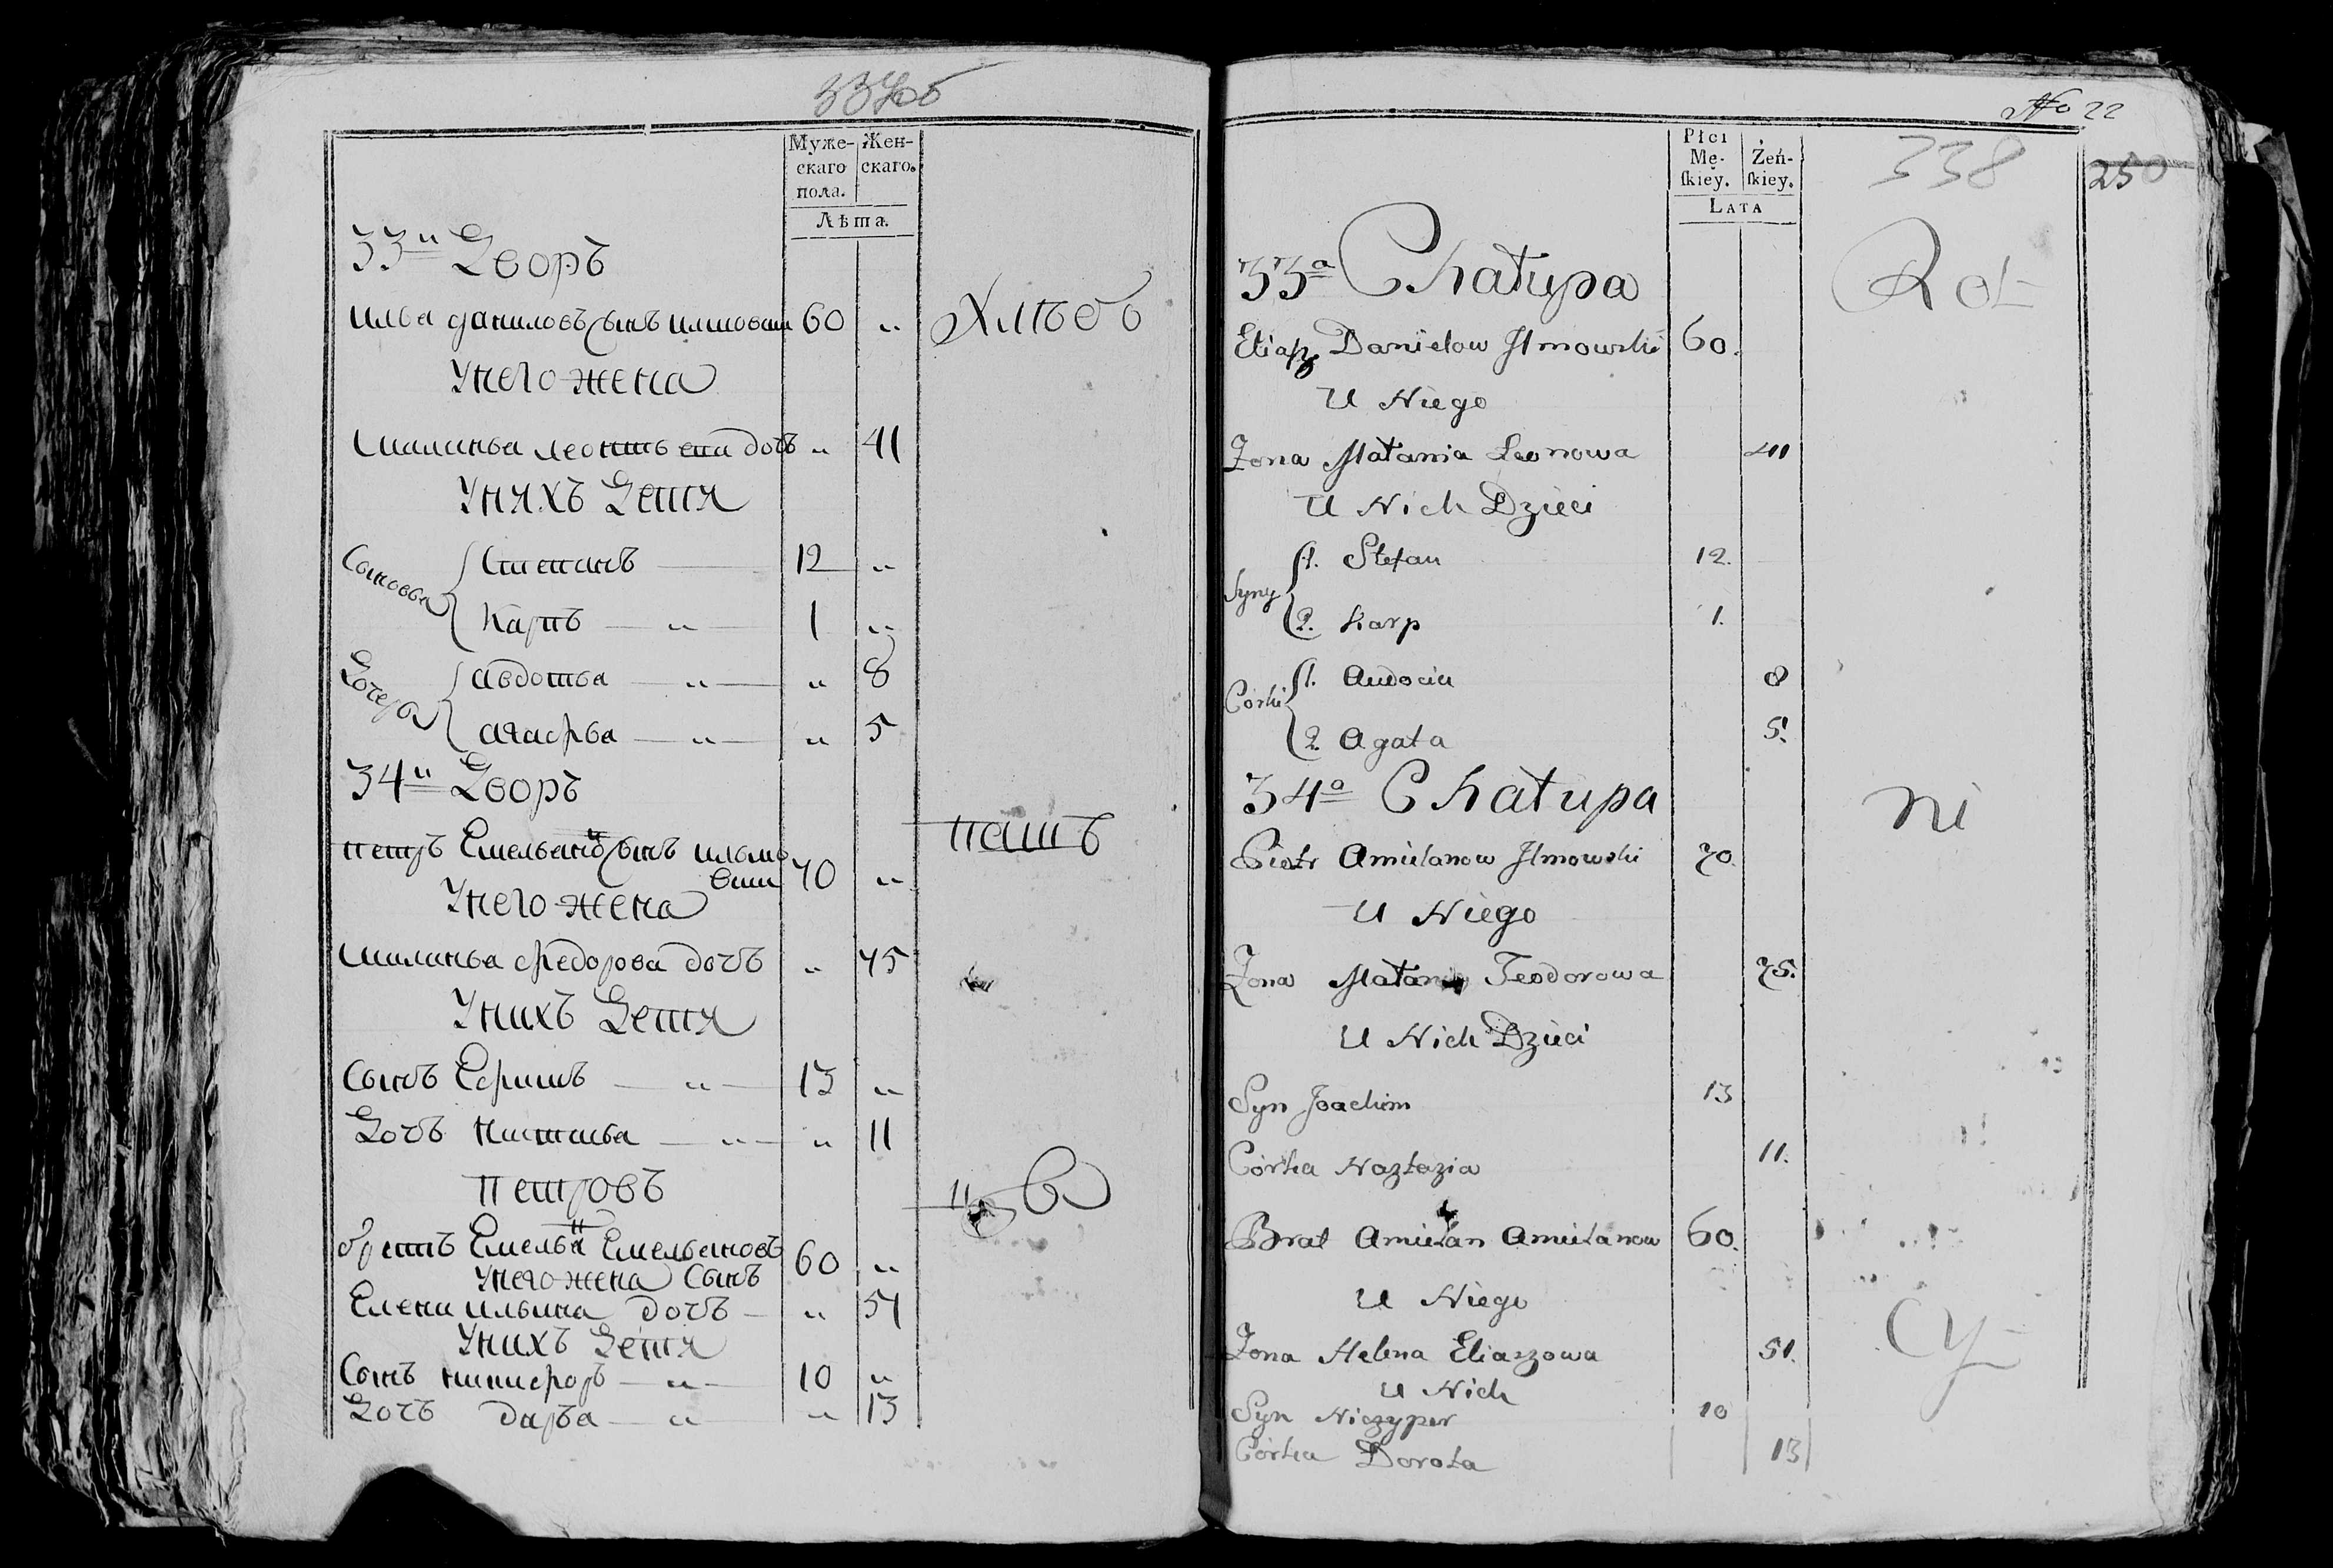 337об
Муже-
скаго
пола.
Жен-
скаго.
Лѣта.
33й Дворъ
илья даниловъ сынъ илмовски 60 „ Хлѣбо
Унего жена
маланья леонтьева дочь „ 41
Унихъ Детя
Сыновья
Степанъ — 12 „
Карпъ — „ — 1 „
Дочеря
авдотья — „ — „ 8
агафья — „ — „ 5
34й Дворъ
пашъ
петръ Емельяновъ сынъ ильмо
вски 70 „
Унего жена
маланья федорова дочъ „ 45
Унихъ Детя
Сынъ Ефимъ — „ — 13 „
Дочъ настасья — „ — „ 11
петровъ
братъ Емельянъ Емельяновъ 60 „
Унего жена Сынъ
Елена ильина дочъ — „ 51
Унихъ Детя
Сынъ никифоръ — „ — 10 „
Дочъ дарья — „ „ 13
No 22
Płci
Mę-
skiey.
Żeń-
skiey.
Lata
338
250
33a Chałupa
Rol-
Eliasz Daniełow Jlmowski 60.
U Niego
Zona Małania Leonowa 41
U Nich Dzieci
Syny
1. Stefan 12.
2. Karp 1.
Corki
1. Audocia 8
2. Agata 5.
34a Chałupa
ni
Piotr Amielanow Jlmowski 70.
U Niego
Zona Małania Teodorowa 45.
U Nich Dzieci
Syn Joachim 13
Córka Nastazia 11.
Brat Amielan Amielanow 60.
U Niego
cy-
Zona Helena Eliaszowa 51.
U Nich
Syn Niczyper 10
Córka Dorota 13